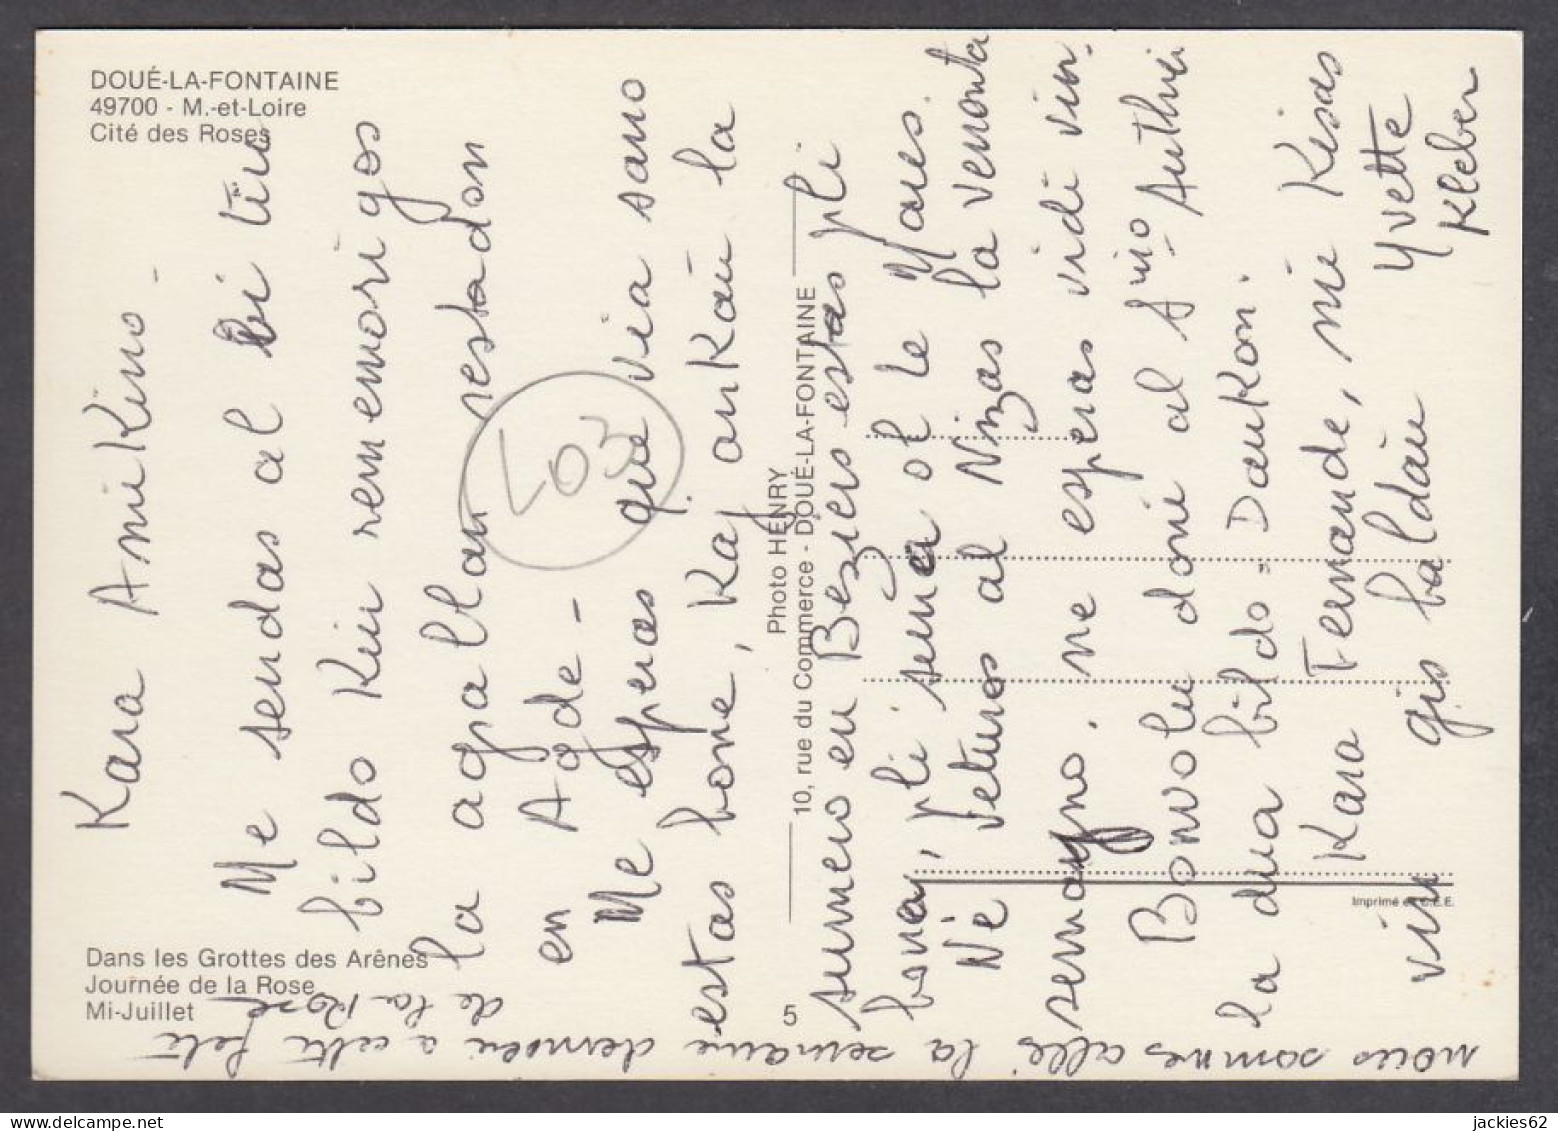 DOUÉ-LA-FONTAINE
49700 - M.-et-Loire
Cité des Roses
Dans les Grottes des Arênes
Journée de la Rose
Mi-Juillet
Photo HENRY
10, rue du Commerce - DOUÉ-LA-FONTAINE
5
Imprimé en C.E.E.
Kara Amikino -
Me sendas al bi tiu
bildo kiu rememorigos
la agablan restadon
en Agde -
Me esperas que via sano
estas bone, kaj ankaŭ la
sumero en Beziers estas pli
bona, pli sumea ol le Mans.
Ne veturos al Nizas la venonta
semagno. me esperas vidi vin.
Bonvolu doni al Sino Authié
la dua bildo - Dankon.
Kara Fernande, mi kisas
vin gis baldaŭ Yvette
Kleber
nous sommes allés la semaine dernière a cette fete
de la Rose
L03
jackies62